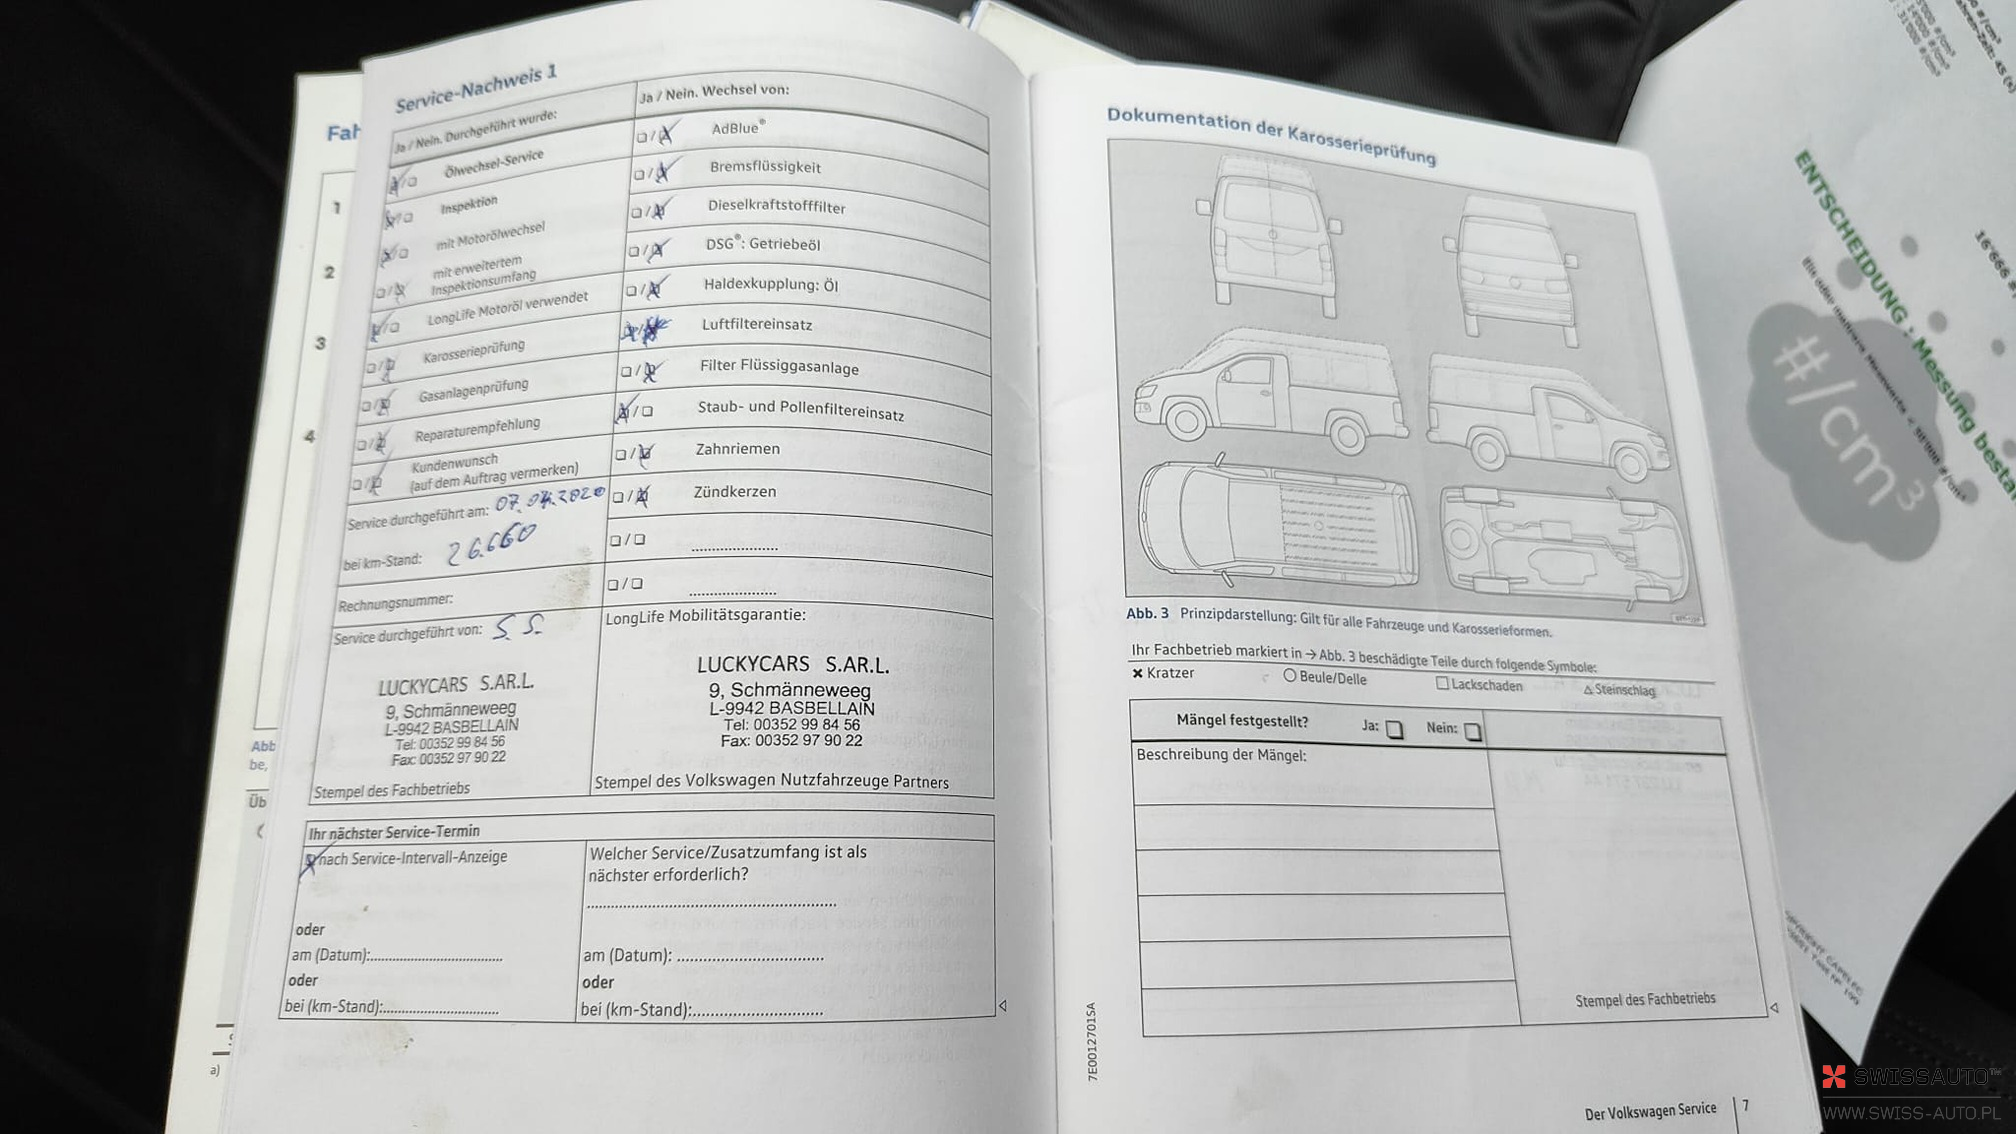 Fah
1
2
3
4
Abb
be,
Üb
a)
Service-Nachweis 1
Ja / Nein. Durchgeführt wurde:
Ölwechsel-Service
Inspektion
mit Motorölwechsel
mit erweitertem
Inspektionsumfang
LongLife Motoröl verwendet
Karosserieprüfung
Gasanlagenprüfung
Reparaturempfehlung
Kundenwunsch
(auf dem Auftrag vermerken)
Service durchgeführt am: 07.04.2020
bei km-Stand: 26.660
Rechnungsnummer:
Service durchgeführt von: S. S.
LUCKYCARS S.AR.L.
9, Schmänneweeg
L-9942 BASBELLAIN
Tel: 00352 99 84 56
Fax: 00352 97 90 22
Stempel des Fachbetriebs
Ja / Nein. Wechsel von:
AdBlue®
Bremsflüssigkeit
Dieselkraftstofffilter
DSG®: Getriebeöl
Haldexkupplung: Öl
Luftfiltereinsatz
Filter Flüssiggasanlage
Staub- und Pollenfiltereinsatz
Zahnriemen
Zündkerzen
LongLife Mobilitätsgarantie:
LUCKYCARS S.AR.L.
9, Schmänneweeg
L-9942 BASBELLAIN
Tel: 00352 99 84 56
Fax: 00352 97 90 22
Stempel des Volkswagen Nutzfahrzeuge Partners
Ihr nächster Service-Termin
nach Service-Intervall-Anzeige
oder
am (Datum):
oder
bei (km-Stand):
Welcher Service/Zusatzumfang ist als
nächster erforderlich?
am (Datum):
oder
bei (km-Stand):
Dokumentation der Karosserieprüfung
Abb. 3 Prinzipdarstellung: Gilt für alle Fahrzeuge und Karosserieformen.
Ihr Fachbetrieb markiert in → Abb. 3 beschädigte Teile durch folgende Symbole:
Kratzer
Beule/Delle
Lackschaden
Steinschlag
Mängel festgestellt? Ja: Nein:
Beschreibung der Mängel:
Stempel des Fachbetriebs
7E0012701SA
Der Volkswagen Service 7
ENTSCHEIDUNG : Messung besta
#/cm³
16'666 #
SWISSAUTO™
WWW.SWISS-AUTO.PL